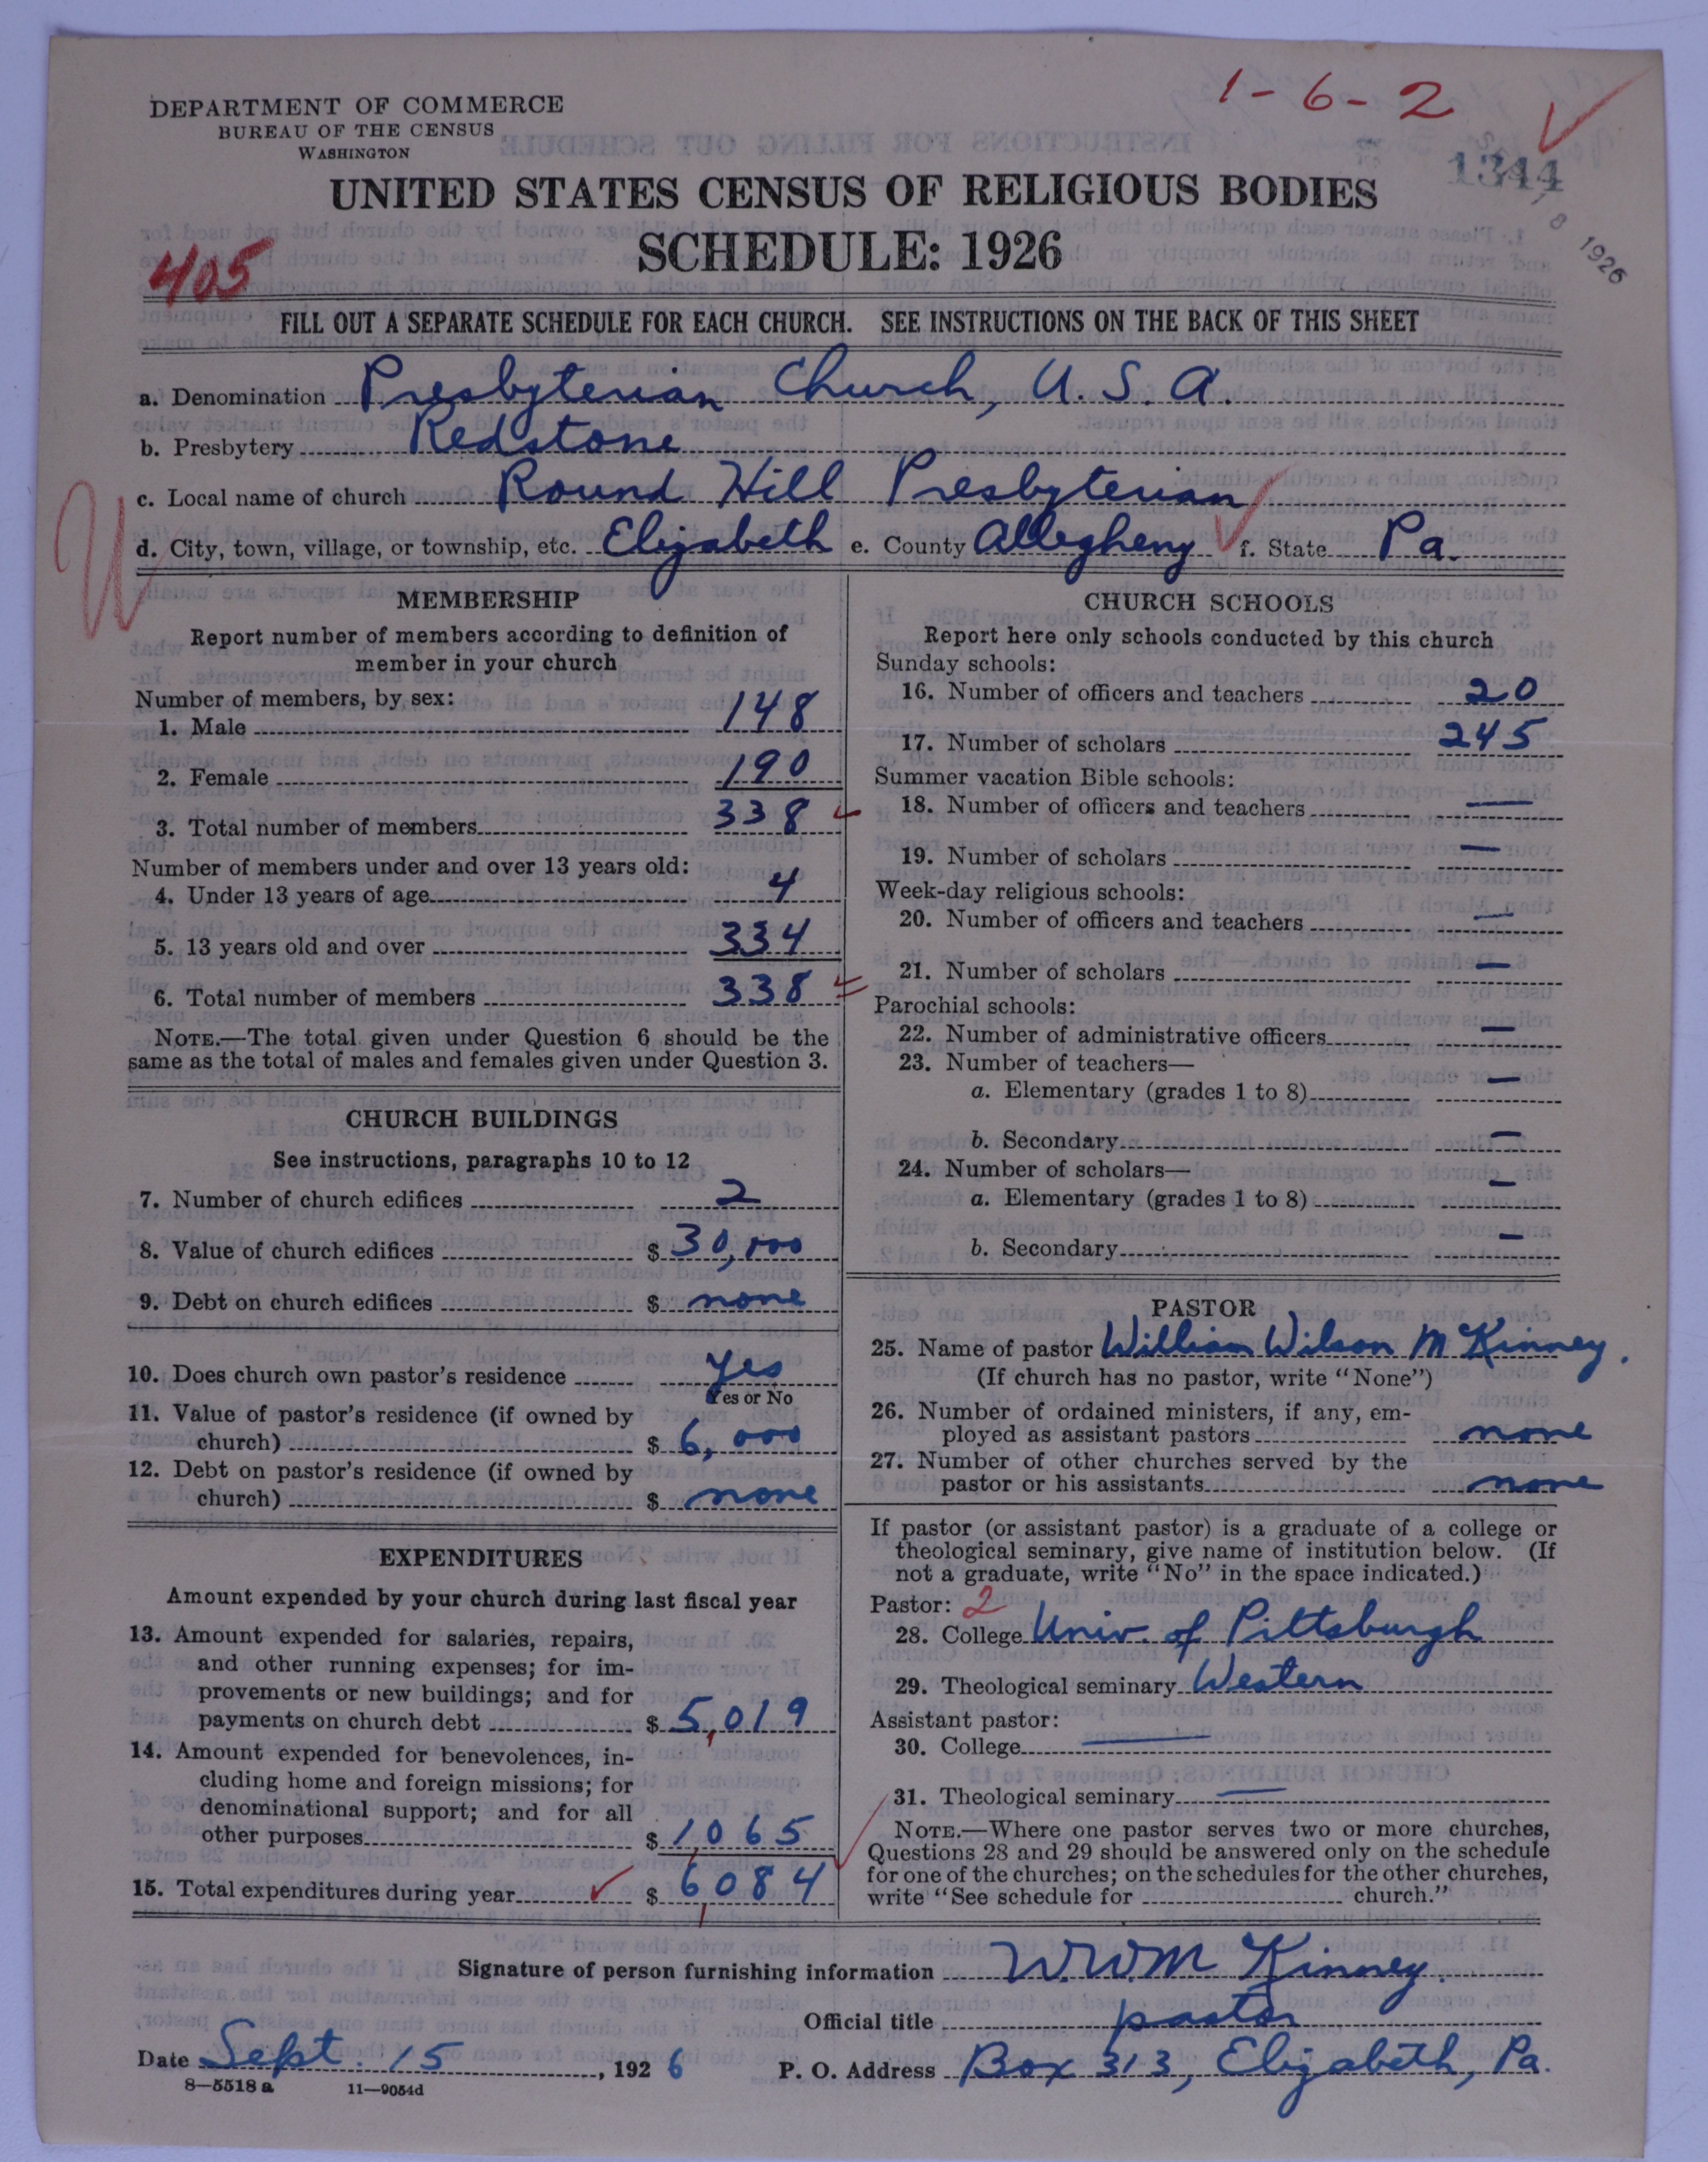 1-6-2
DEPARTMENT OF COMMERCE
BUREAU OF THE CENSUS
WASHINGTON
1344
UNITED STATES CENSUS OF RELIGIOUS BODIES
SCHEDULE: 1926
8 1926
405
FILL OUT A SEPARATE SCHEDULE FOR EACH CHURCH. SEE INSTRUCTIONS ON THE BACK OF THIS SHEET
a. Denomination Presbyterian Church, U. S. A.
b. Presbytery Redstone
c. Local name of church Round Hill Presbyterian
d. City, town, village, or township, etc. Elizabeth e. County Allegheny f. State Pa.
MEMBERSHIP
Report number of members according to definition of
member in your church
Number of members, by sex:
1. Male 148
2. Female 190
3. Total number of members 338
Number of members under and over 13 years old:
4. Under 13 years of age 4
5. 13 years old and over 334
6. Total number of members 338
NOTE.—The total given under Question 6 should be the
same as the total of males and females given under Question 3.
CHURCH BUILDINGS
See instructions, paragraphs 10 to 12
7. Number of church edifices 2
8. Value of church edifices $ 30,000
9. Debt on church edifices $ none
10. Does church own pastor's residence yes
Yes or No
11. Value of pastor's residence (if owned by
church) $ 6,000
12. Debt on pastor's residence (if owned by
church) $ none
EXPENDITURES
Amount expended by your church during last fiscal year
13. Amount expended for salaries, repairs,
and other running expenses; for im-
provements or new buildings; and for
payments on church debt $ 5,019
14. Amount expended for benevolences, in-
cluding home and foreign missions; for
denominational support; and for all
other purposes $ 1,065
15. Total expenditures during year $ 6,084
CHURCH SCHOOLS
Report here only schools conducted by this church
Sunday schools:
16. Number of officers and teachers 20
17. Number of scholars 245
Summer vacation Bible schools:
18. Number of officers and teachers —
19. Number of scholars —
Week-day religious schools:
20. Number of officers and teachers —
21. Number of scholars —
Parochial schools:
22. Number of administrative officers —
23. Number of teachers—
a. Elementary (grades 1 to 8) —
b. Secondary —
24. Number of scholars—
a. Elementary (grades 1 to 8) —
b. Secondary —
PASTOR
25. Name of pastor William Wilson McKinney.
(If church has no pastor, write "None")
26. Number of ordained ministers, if any, em-
ployed as assistant pastors none
27. Number of other churches served by the
pastor or his assistants none
If pastor (or assistant pastor) is a graduate of a college or
theological seminary, give name of institution below. (If
not a graduate, write "No" in the space indicated.)
Pastor: 2
28. College Univ. of Pittsburgh
29. Theological seminary Western
Assistant pastor:
30. College —
31. Theological seminary —
NOTE.—Where one pastor serves two or more churches,
Questions 28 and 29 should be answered only on the schedule
for one of the churches; on the schedules for the other churches,
write "See schedule for church."
Signature of person furnishing information W.W. McKinney.
Official title pastor
Date Sept. 15, 1926 P. O. Address Box 313, Elizabeth, Pa.
8—5518 a 11—9054d